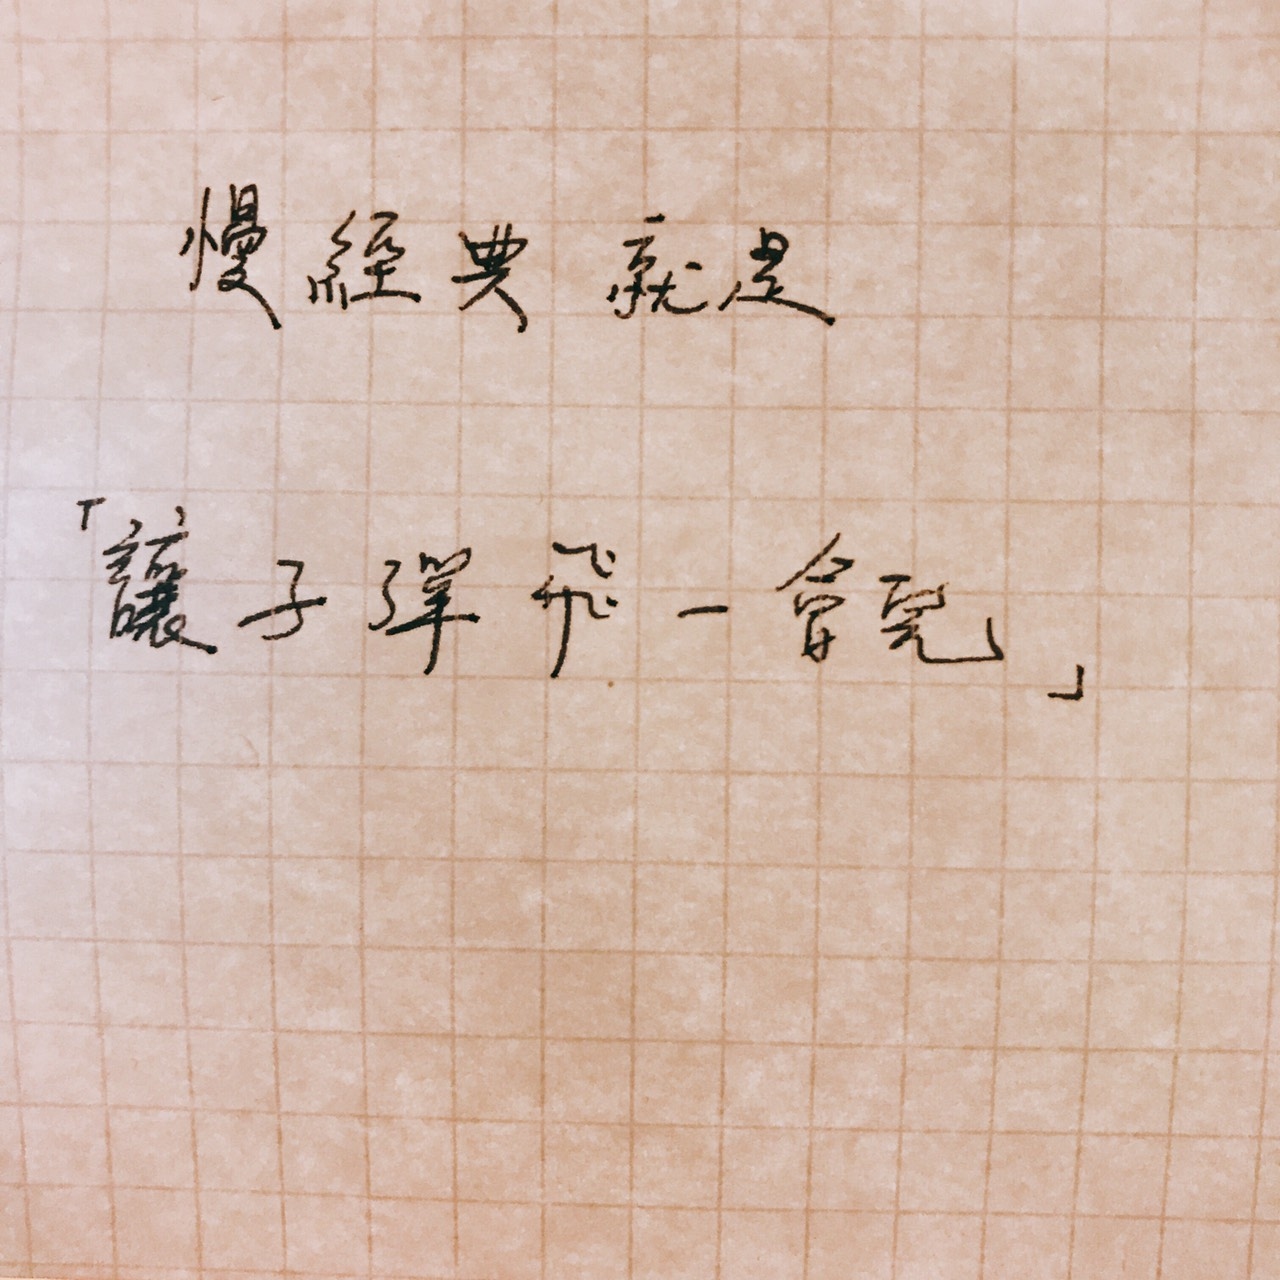 慢經典就是
「讓子彈飛一會兒」